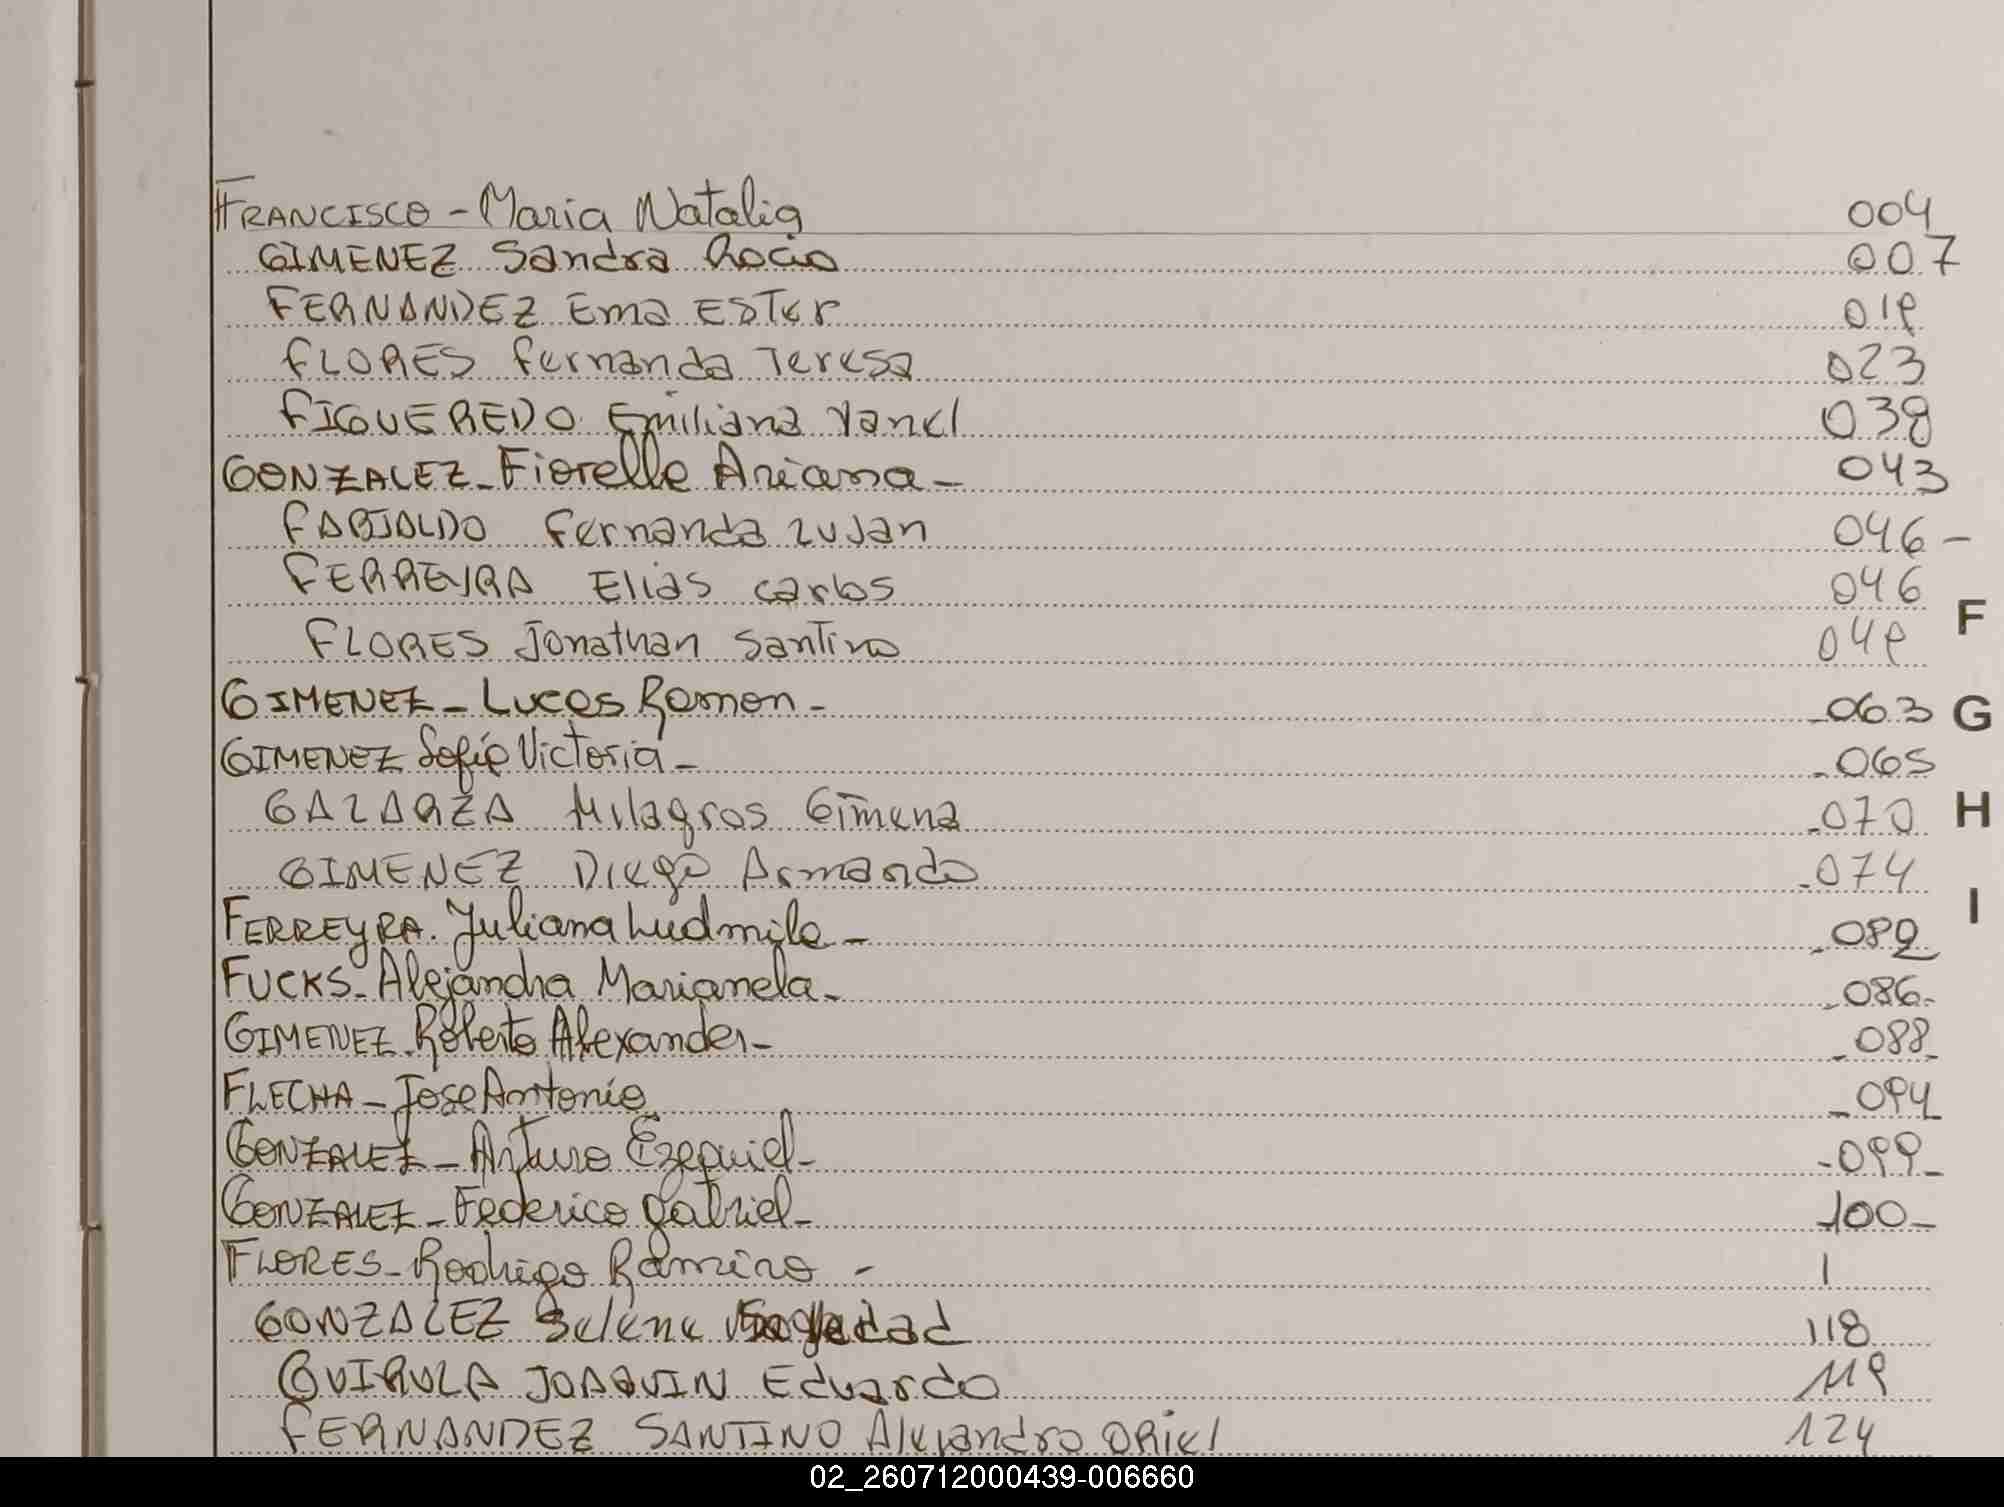 FRANCISCO - Maria Natalia 004
GIMENEZ Sandra Rocio 007
FERNANDEZ Ema Ester 019
FLORES Fernanda Teresa 023
FIGUEREDO Emiliana Yanel 038
GONZALEZ - Fiorella Ariana - 043
FABJALDO Fernanda Lujan 046 -
FERREYRA Elias Carlos 046
F
FLORES Jonathan Santino 049
GIMENEZ - Lucas Ramon - 063
G
GIMENEZ Sofia Victoria - 065
GALARZA Milagros Gimena 070
H
GIMENEZ Diego Armando 074
I
FERREYRA. Juliana Ludmila - 082
FUCKS - Alejandra Marianela - 086 -
GIMENEZ - Roberto Alexander - 088 -
FLECHA - Jose Antonio 094
GONZALEZ - Arturo Ezequiel - 099 -
GONZALEZ - Federico Gabriel - 100 -
FLORES - Rodrigo Ramiro - 1
GONZALEZ Selene 118
GUIRULA JOAQUIN Eduardo 119
FERNANDEZ SANTINO Alejandro ORIEL 124
02_260712000439-006660